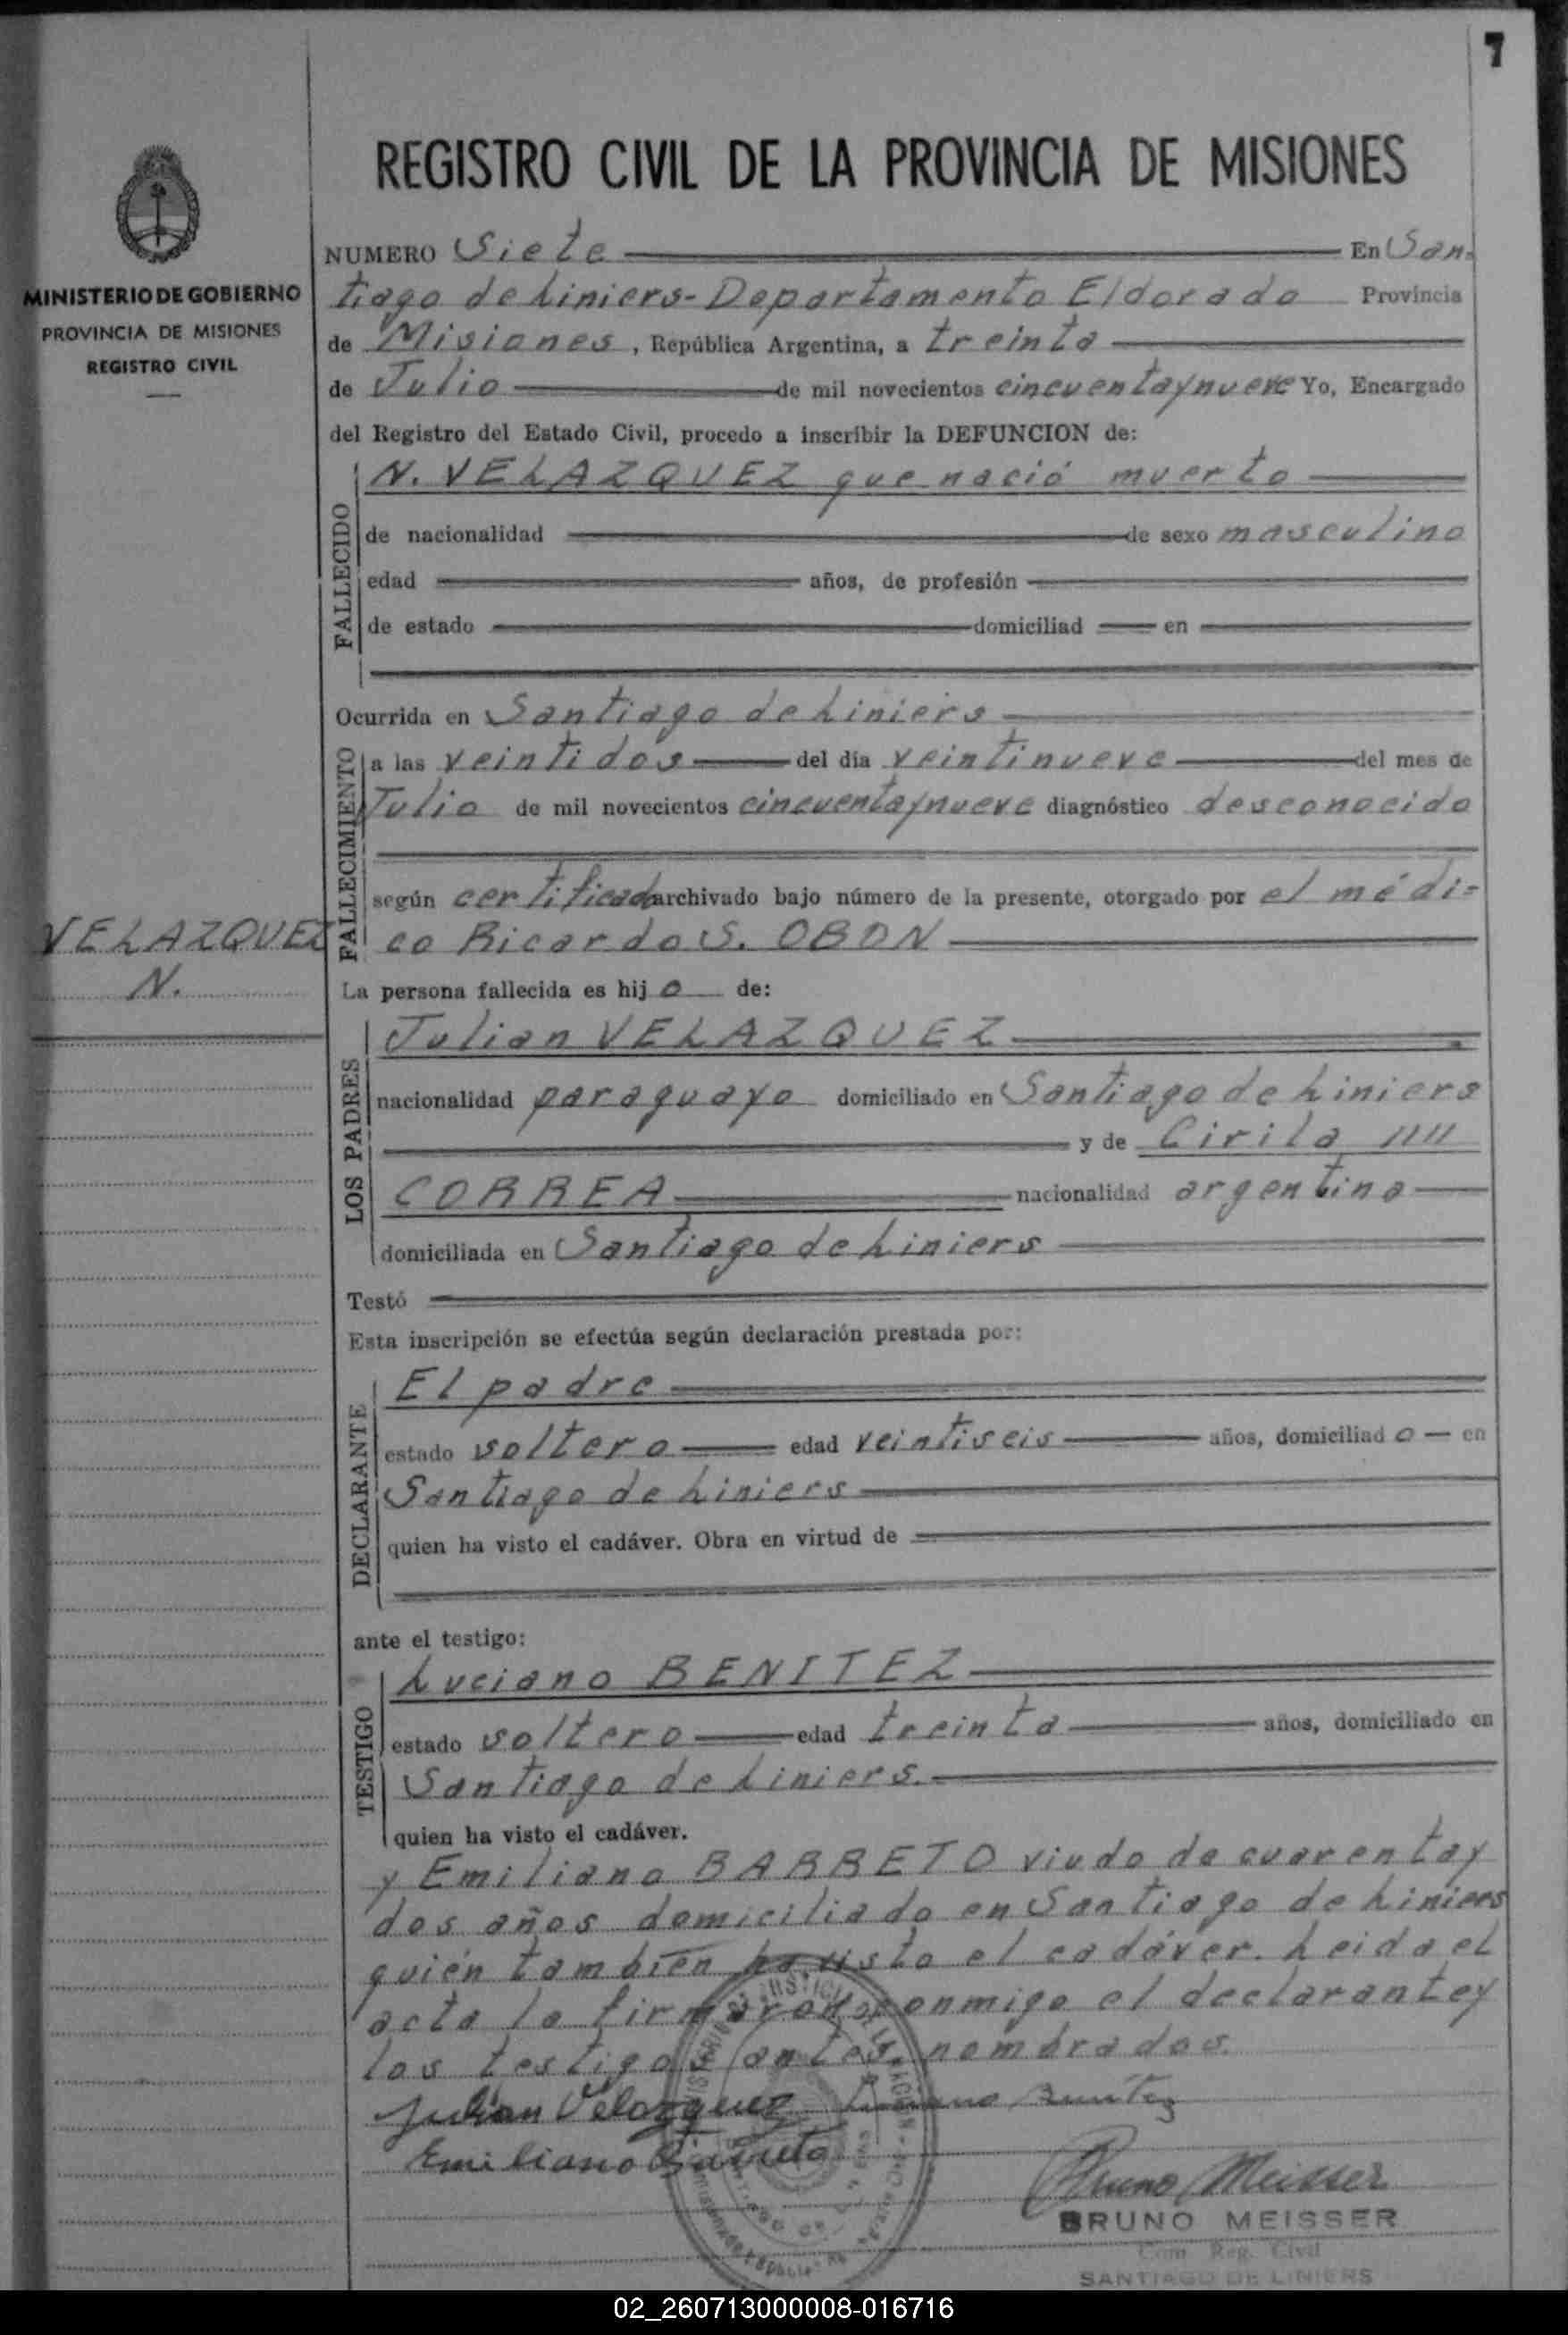 7
REGISTRO CIVIL DE LA PROVINCIA DE MISIONES
MINISTERIO DE GOBIERNO
PROVINCIA DE MISIONES
REGISTRO CIVIL
NUMERO Siete En San-
tiago de Liniers - Departamento Eldorado Provincia
de Misiones, República Argentina, a treinta
de Julio de mil novecientos cincuenta y nueve Yo, Encargado
del Registro del Estado Civil, procedo a inscribir la DEFUNCION de:
FALLECIDO
N. VELAZQUEZ que nació muerto
de nacionalidad de sexo masculino
edad años, de profesión
de estado domiciliad en
Ocurrida en Santiago de Liniers
FALLECIMIENTO
a las veintidos del día veintinueve del mes de
Julio de mil novecientos cincuenta y nueve diagnóstico desconocido
según certificado archivado bajo número de la presente, otorgado por el médi-
co Ricardo S. OBON
VELAZQUEZ
N.
La persona fallecida es hijo de:
LOS PADRES
Julian VELAZQUEZ
nacionalidad paraguayo domiciliado en Santiago de Liniers
y de Cirila
CORREA nacionalidad argentina
domiciliada en Santiago de Liniers
Testó
Esta inscripción se efectúa según declaración prestada por:
DECLARANTE
El padre
estado soltero edad veintiseis años, domiciliado en
Santiago de Liniers
quien ha visto el cadáver. Obra en virtud de
ante el testigo:
TESTIGO
Luciano BENITEZ
estado soltero edad treinta años, domiciliado en
Santiago de Liniers.
quien ha visto el cadáver.
y Emiliano BARRETO viudo de cuarenta y
dos años domiciliado en Santiago de Liniers
quién también ha visto el cadáver. Leida el
acta la firmaron conmigo el declarante y
los testigos antes nombrados.
Julian Velazquez Luciano Benitez
Emiliano Barreto
Bruno Meisser
BRUNO MEISSER
Reg. Civil
SANTIAGO DE LINIERS
02_260713000008-016716